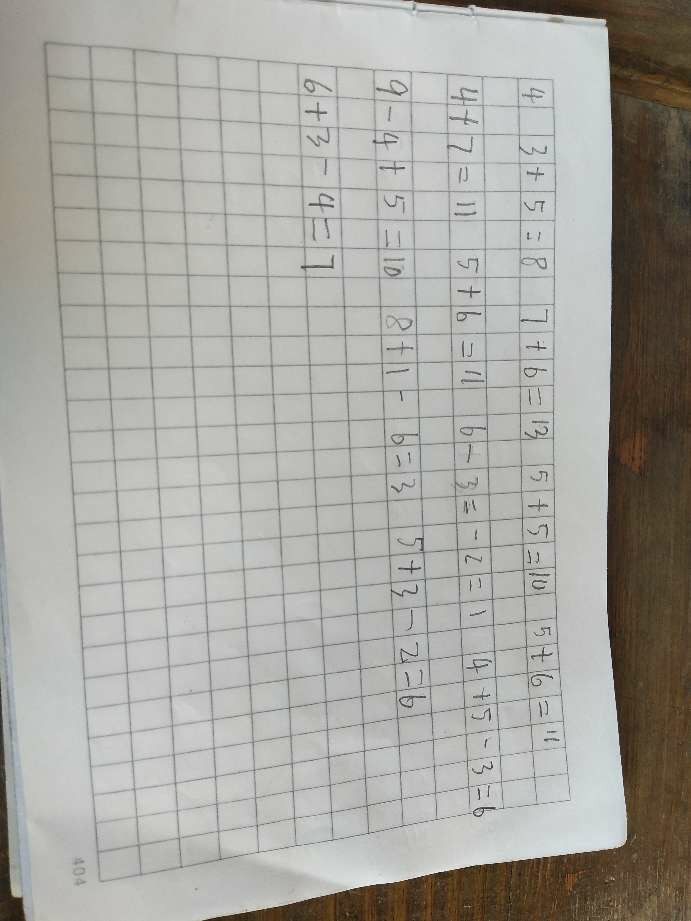 4 3+5=8 7+6=13 5+5=10 5+6=11
4+7=11 5+6=11 6-3=-2=1 4+5-3=6
9-4+5=10 8+1-6=3 5+3-2=6
6+3-4=7
404